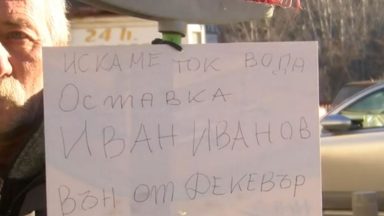 24 h.
ИСКАМЕ ТОК ВОДА
ОСТАВКА
ИВАН ИВАНОВ
ВЪН ОТ ДКЕВЪР